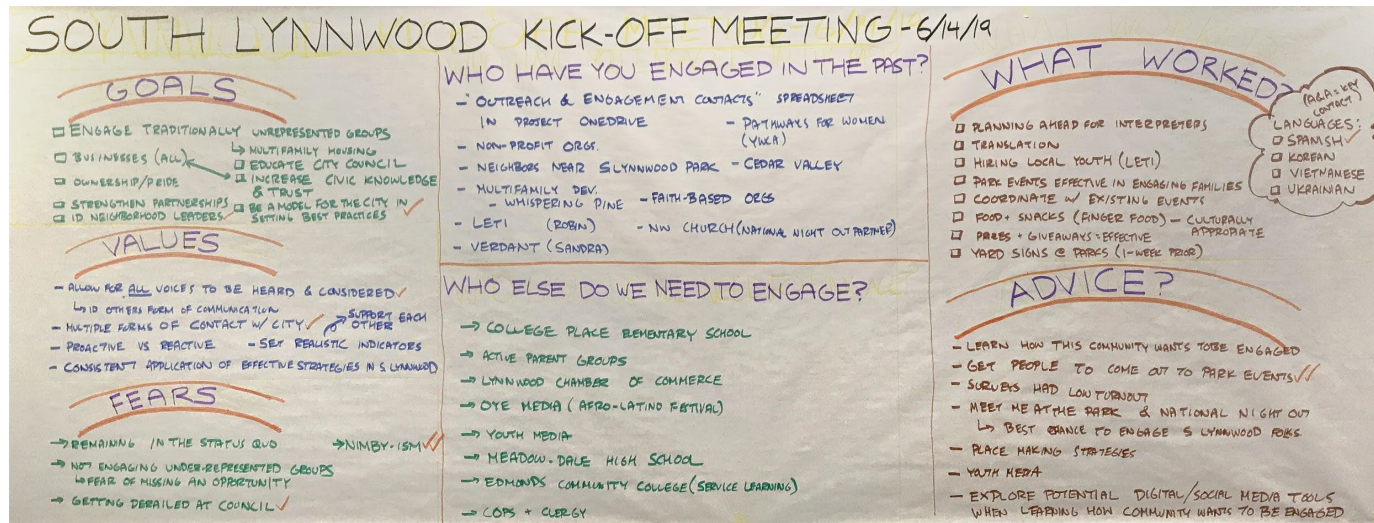 SOUTH LYNNWOOD KICK-OFF MEETING - 6/14/19
GOALS
ENGAGE TRADITIONALLY UNREPRESENTED GROUPS
↳ MULTIFAMILY HOUSING
BUSINESSES (ALL)
EDUCATE CITY COUNCIL
OWNERSHIP/PRIDE
INCREASE CIVIC KNOWLEDGE
& TRUST
STRENGTHEN PARTNERSHIPS
BE A MODEL FOR THE CITY IN
ID NEIGHBORHOOD LEADERS ✓
SETTING BEST PRACTICES ✓
VALUES
- ALLOW FOR ALL VOICES TO BE HEARD & CONSIDERED ✓
↳ ID OTHERS FORM OF COMMUNICATION
- MULTIPLE FORMS OF CONTACT W/ CITY ✓
SUPPORT EACH
OTHER
- PROACTIVE VS REACTIVE
- SET REALISTIC INDICATORS
- CONSISTENT APPLICATION OF EFFECTIVE STRATEGIES IN S LYNNWOOD
FEARS
→ REMAINING IN THE STATUS QUO
→ NIMBY-ISM ✓✓
→ NOT ENGAGING UNDER-REPRESENTED GROUPS
↳ FEAR OF MISSING AN OPPORTUNITY
→ GETTING DERAILED AT COUNCIL ✓
WHO HAVE YOU ENGAGED IN THE PAST?
- "OUTREACH & ENGAGEMENT CONTACTS" SPREADSHEET
IN PROJECT ONEDRIVE
- PATHWAYS FOR WOMEN
(YWCA)
- NON-PROFIT ORGS.
- NEIGHBORS NEAR S LYNNWOOD PARK
- CEDAR VALLEY
- MULTIFAMILY DEV.
- WHISPERING PINE
- FAITH-BASED ORGS
- LETI (ROBIN)
- NW CHURCH (NATIONAL NIGHT OUT PARTNER)
- VERDANT (SANDRA)
WHO ELSE DO WE NEED TO ENGAGE?
→ COLLEGE PLACE ELEMENTARY SCHOOL
→ ACTIVE PARENT GROUPS
→ LYNNWOOD CHAMBER OF COMMERCE
→ OYE MEDIA (AFRO-LATINO FESTIVAL)
→ YOUTH MEDIA
→ MEADOW-DALE HIGH SCHOOL
→ EDMONDS COMMUNITY COLLEGE (SERVICE LEARNING)
→ COPS + CLERGY
WHAT WORKED?
PLANNING AHEAD FOR INTERPRETERS
TRANSLATION
HIRING LOCAL YOUTH (LETI)
PARK EVENTS EFFECTIVE IN ENGAGING FAMILIES
COORDINATE W/ EXISTING EVENTS
FOOD + SNACKS (FINGER FOOD) - CULTURALLY
APPROPRIATE
PRIZES + GIVEAWAYS = EFFECTIVE
YARD SIGNS @ PARKS (1-WEEK PRIOR)
= KEY
CONTACT)
LANGUAGES:
SPANISH ✓
KOREAN
VIETNAMESE
UKRAINIAN
ADVICE?
- LEARN HOW THIS COMMUNITY WANTS TO BE ENGAGED
- GET PEOPLE TO COME OUT TO PARK EVENTS ✓✓
- SURVEYS HAD LOW TURNOUT
- MEET ME AT THE PARK & NATIONAL NIGHT OUT
↳ BEST CHANCE TO ENGAGE S LYNNWOOD FOLKS
- PLACE MAKING STRATEGIES
- YOUTH MEDIA
- EXPLORE POTENTIAL DIGITAL/SOCIAL MEDIA TOOLS
WHEN LEARNING HOW COMMUNITY WANTS TO BE ENGAGED